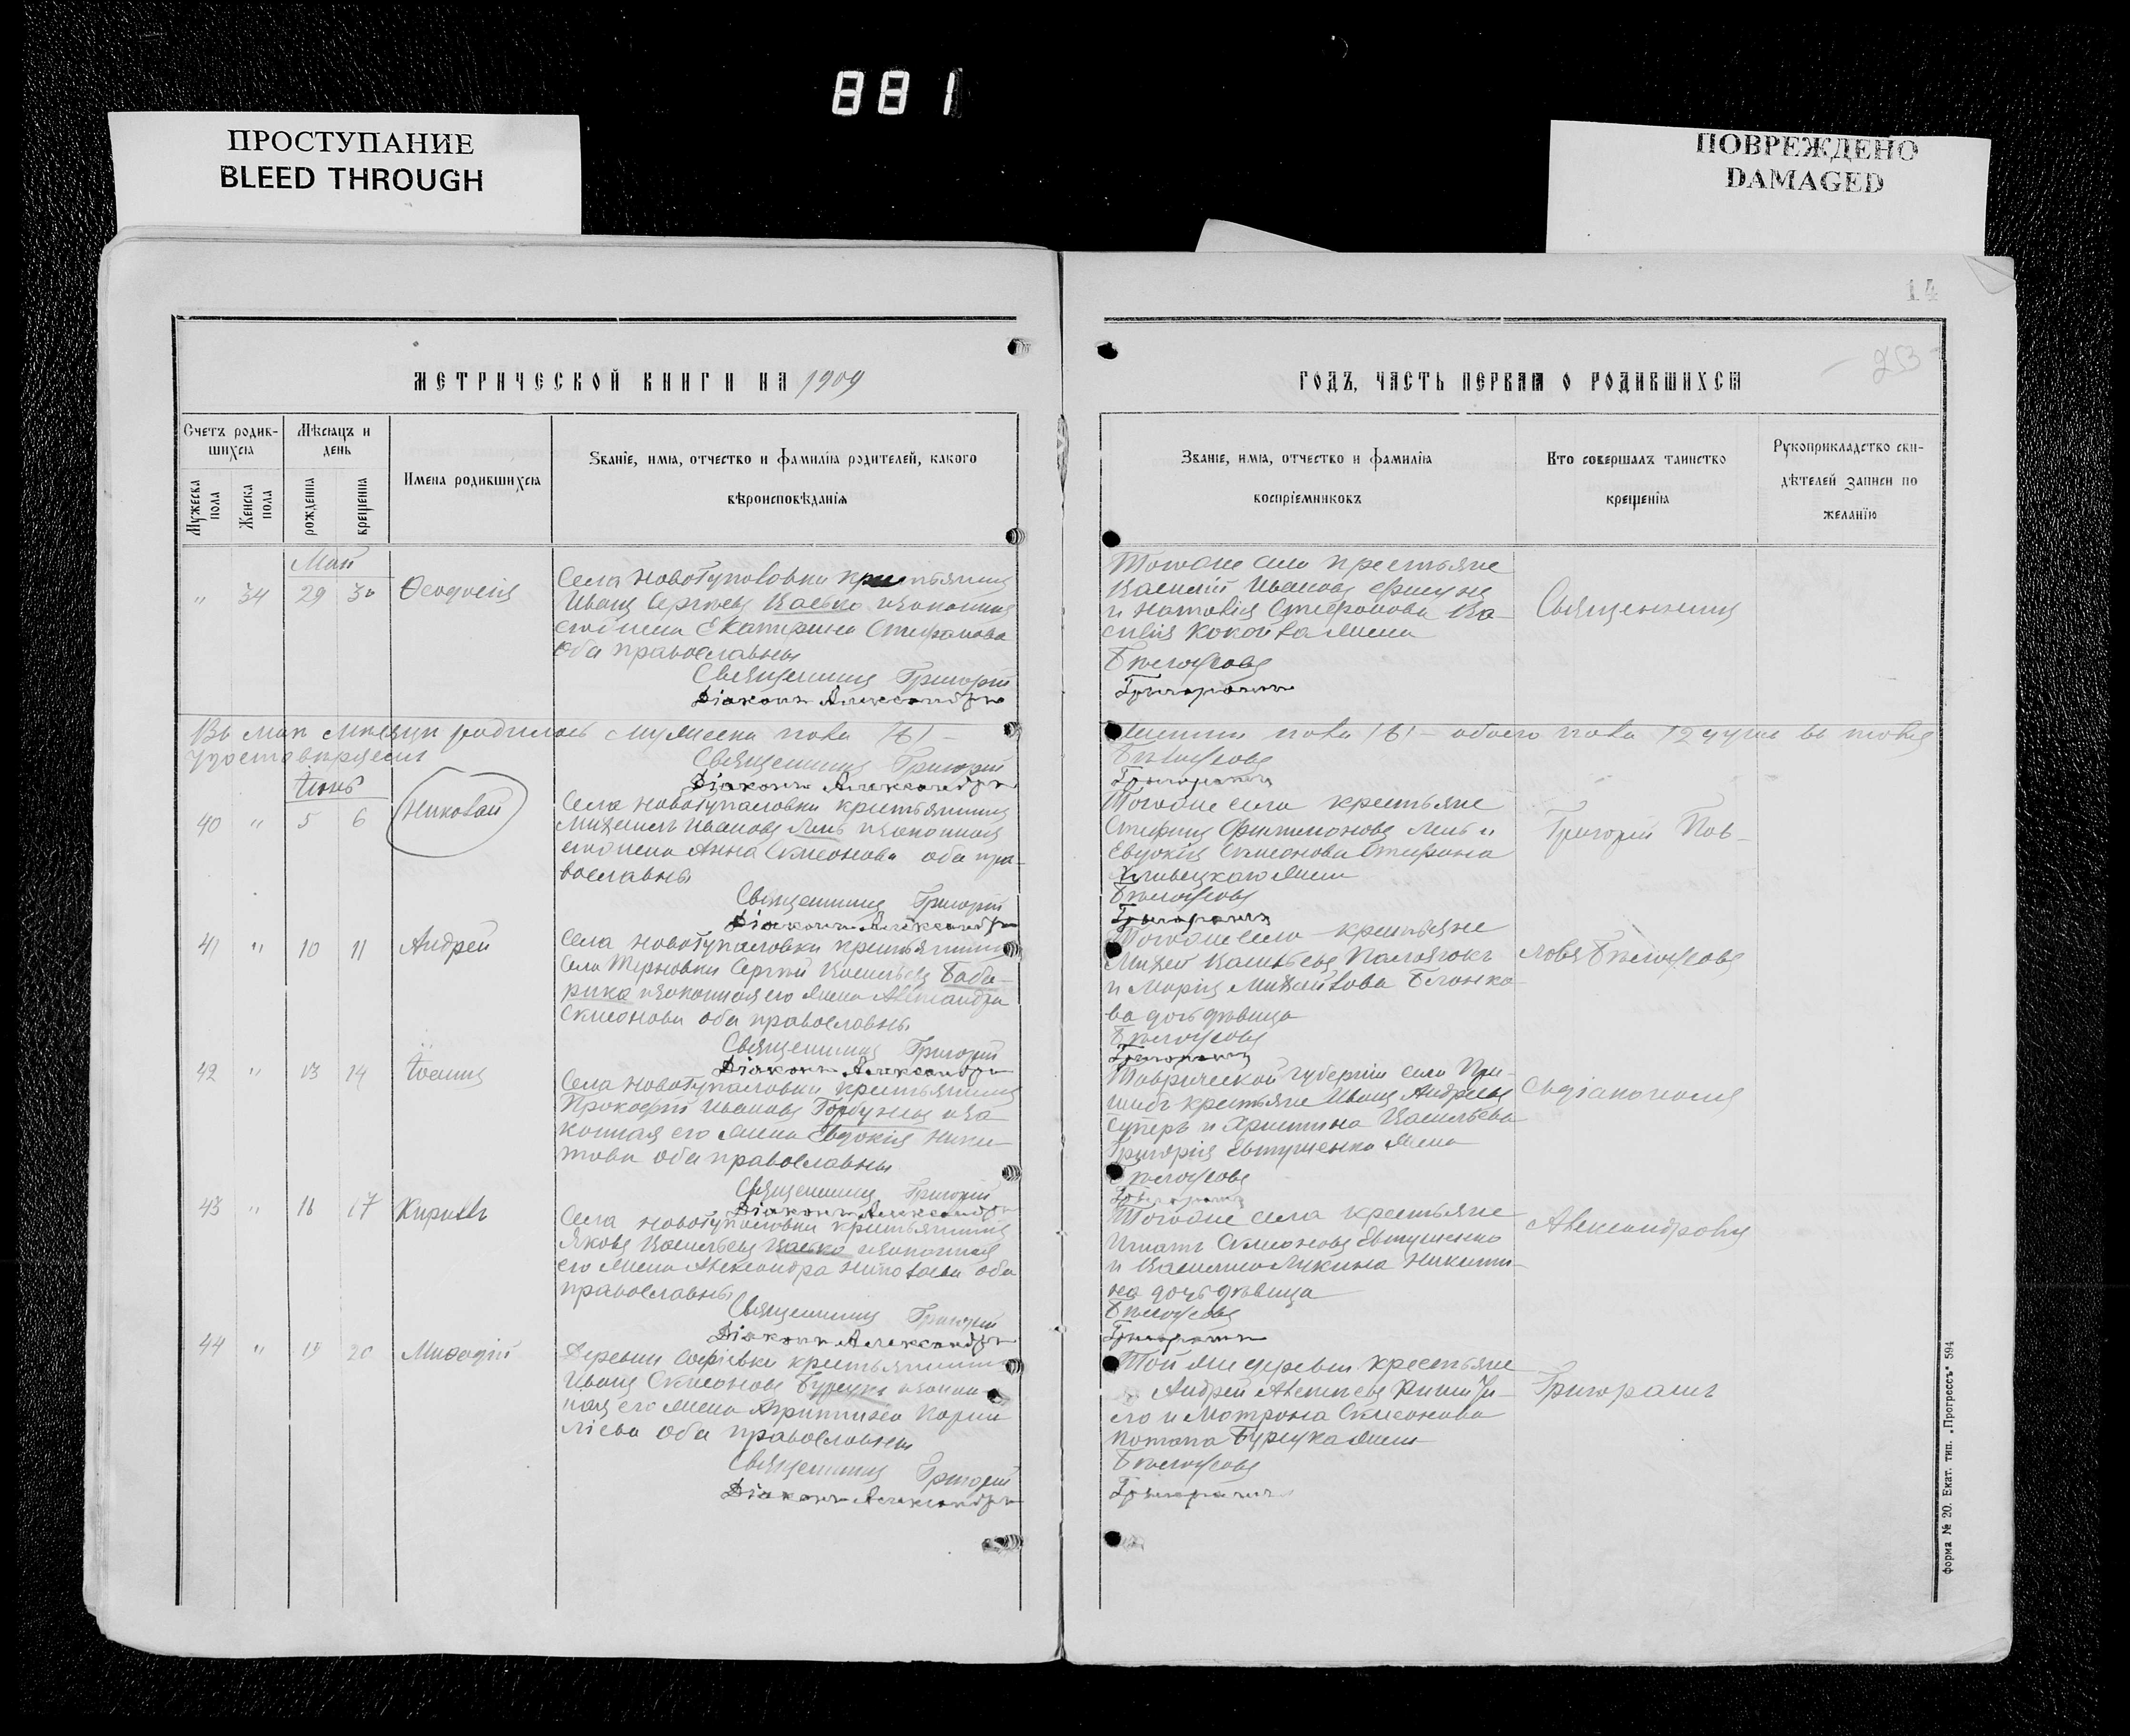 881
ПРОСТУПАНИЕ
BLEED THROUGH
ПОВРЕЖДЕНО
DAMAGED
14
253
МЕТРИЧЕСКОЙ КНИГИ НА 1909
ГОДЪ, ЧАСТЬ ПЕРВАЯ О РОДИВШИХСЯ
Счетъ родив-
шихся
Мужеска пола
Женска пола
Мѣсяцъ и
день
рождениа
крещениа
Имена родившихся
Званіе, имя, отчество и фамилія родителей, какого
вѣроисповѣданія
Званіе, имя, отчество и фамилія
воспріемниковъ
Кто совершалъ таинство
крещенія
Рукоприкладство сви-
дѣтелей записи по
желанію
Май
" 34 29 30 Ѳеодосія
Села Новогупаловки крестьянинъ
Иванъ Сергѣевъ Васько и законная
его жена Екатерина Стефанова
оба православны
Священникъ Григорій
Діаконъ Александръ
Тогоже села крестьяне
Василій Ивановъ
и Наталія Стефанова Ва-
силія жена
Бѣлоусовъ
Григорашъ
Священникъ
Въ маѣ мѣсяцѣ родилось мужеска пола /6/ –
женска пола /6/ – обоего пола 12 душъ въ томъ
удостовѣряемъ
Священникъ Григорій
Діаконъ Александръ
Бѣлоусовъ
Григорашъ
Іюнь
40 " 5 6 Николай
Села Новогупаловки крестьянинъ
Михаилъ Ивановъ Лень и законная
его жена Анна Симеонова оба пра-
вославны
Священникъ Григорій
Діаконъ Александръ
Тогоже села крестьяне
Стефанъ Филимоновъ Лень и
Евдокія Симеонова Стефана
жена
Бѣлоусовъ
Григорашъ
Григорій Пав-
41 " 10 11 Андрей
Села Новогупаловки крестьянинъ
села Терновки Сергѣй Васильевъ Баба-
рика и законная его жена Александра
Симеонова оба православны
Священникъ Григорій
Діаконъ Александръ
Тогоже села крестьяне
Михей Васильевъ
и Марія Михайлова
ва дочь дѣвица
Бѣлоусовъ
Григорашъ
ловъ Бѣлоусовъ
42 " 13 14 Іоаннъ
Села Новогупаловки крестьянинъ
Прокофій Ивановъ Горбуновъ и за
конная его жена Евдокія Ники-
това оба православны
Священникъ Григорій
Діаконъ Александръ
Таврической губерніи села При-
шибъ крестьяне Иванъ Андреевъ
и Христина Васильева
Григорія Евтушенко жена
Бѣлоусовъ
Григорашъ
съ діакономъ
43 " 16 17 Кириллъ
Села Новогупаловки крестьянинъ
Яковъ Васильевъ Васько и законная
его жена Александра Николаева оба
православны
Священникъ Григорій
Діаконъ Александръ
Тогоже села крестьяне
Игнатъ Симеоновъ Евтушенко
и Василиса Лукина Никити-
на дочь дѣвица
Бѣлоусовъ
Григорашъ
Александромъ
44 " 19 20 Меѳодій
Деревни Софіевки крестьянинъ
Иванъ Симеоновъ Бурсукъ и закон
ная его жена Корни
ліева оба православны
Священникъ Григорій
Діаконъ Александръ
Той же деревни крестьяне
Андрей Алексѣевъ
и Матрона Симеонова
Потапа Бурсука жена
Бѣлоусовъ
Григорашъ
Григорашъ
форма № 20. Екат. тип. „Прогрессъ" 594